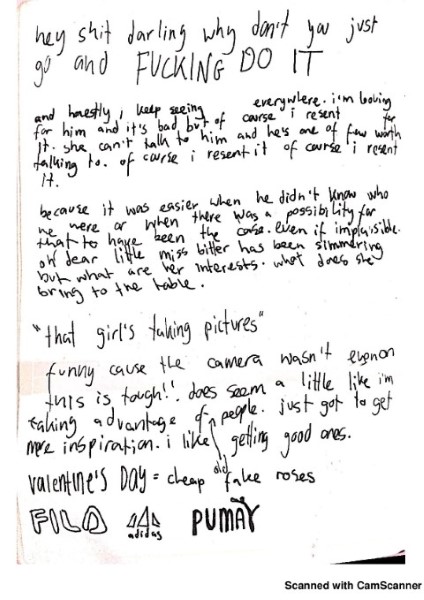 hey shit darling why don't you just
go and FUCKING DO IT
and honestly, i keep seeing everywhere. i'm looking
for him and it's bad but of course i resent for
it. she can't talk to him and he's one of few worth
talking to. of course i resent it of course i resent
it.
because it was easier when he didn't know who
we were or when there was a possibility for
that to have been the case. even if implausible.
oh dear little miss bitter has been simmering
but what are her interests. what does she
bring to the table.
"that girl's taking pictures"
funny cause the camera wasn't even on
this is tough!! does seem a little like i'm
taking advantage of old people. just got to get
more inspiration. i like getting good ones.
valentine's DAY = cheap fake roses
FILA adidas PUMA
Scanned with CamScanner